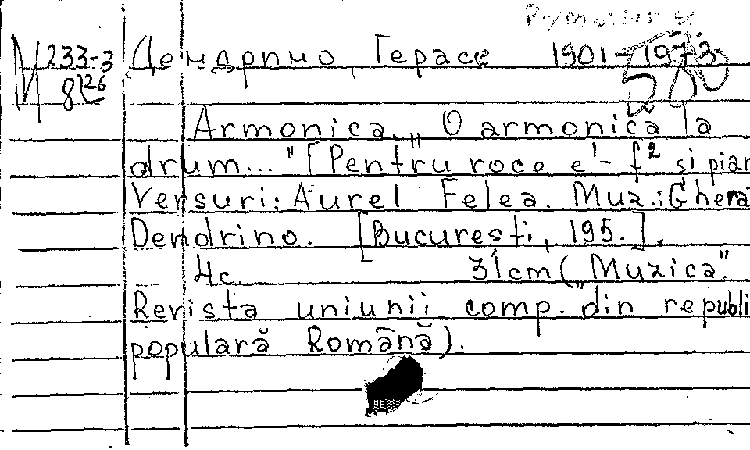 М 233-3 Дендрино, Герасе 1901-1973
8126
Armonica. „O armonică la
drum..." [Pentru voce e¹-f² și pian
Versuri: Aurel Felea. Muz.: Ghera
Dendrino. [București, 195.].
4c. 31cm („Muzica".
Revista uniunii comp. din republi
populară Română).